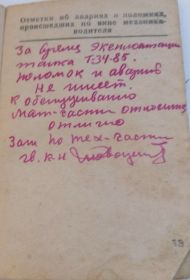 Отметки об авариях и поломках,
происшедших по вине механика-
водителя
За время эксплоатации
танка Т-34-85.
поломок и аварий
не имеет.
К обслуживанию
мат-части относится
отлично
Зам по тех-части
гв. к-н